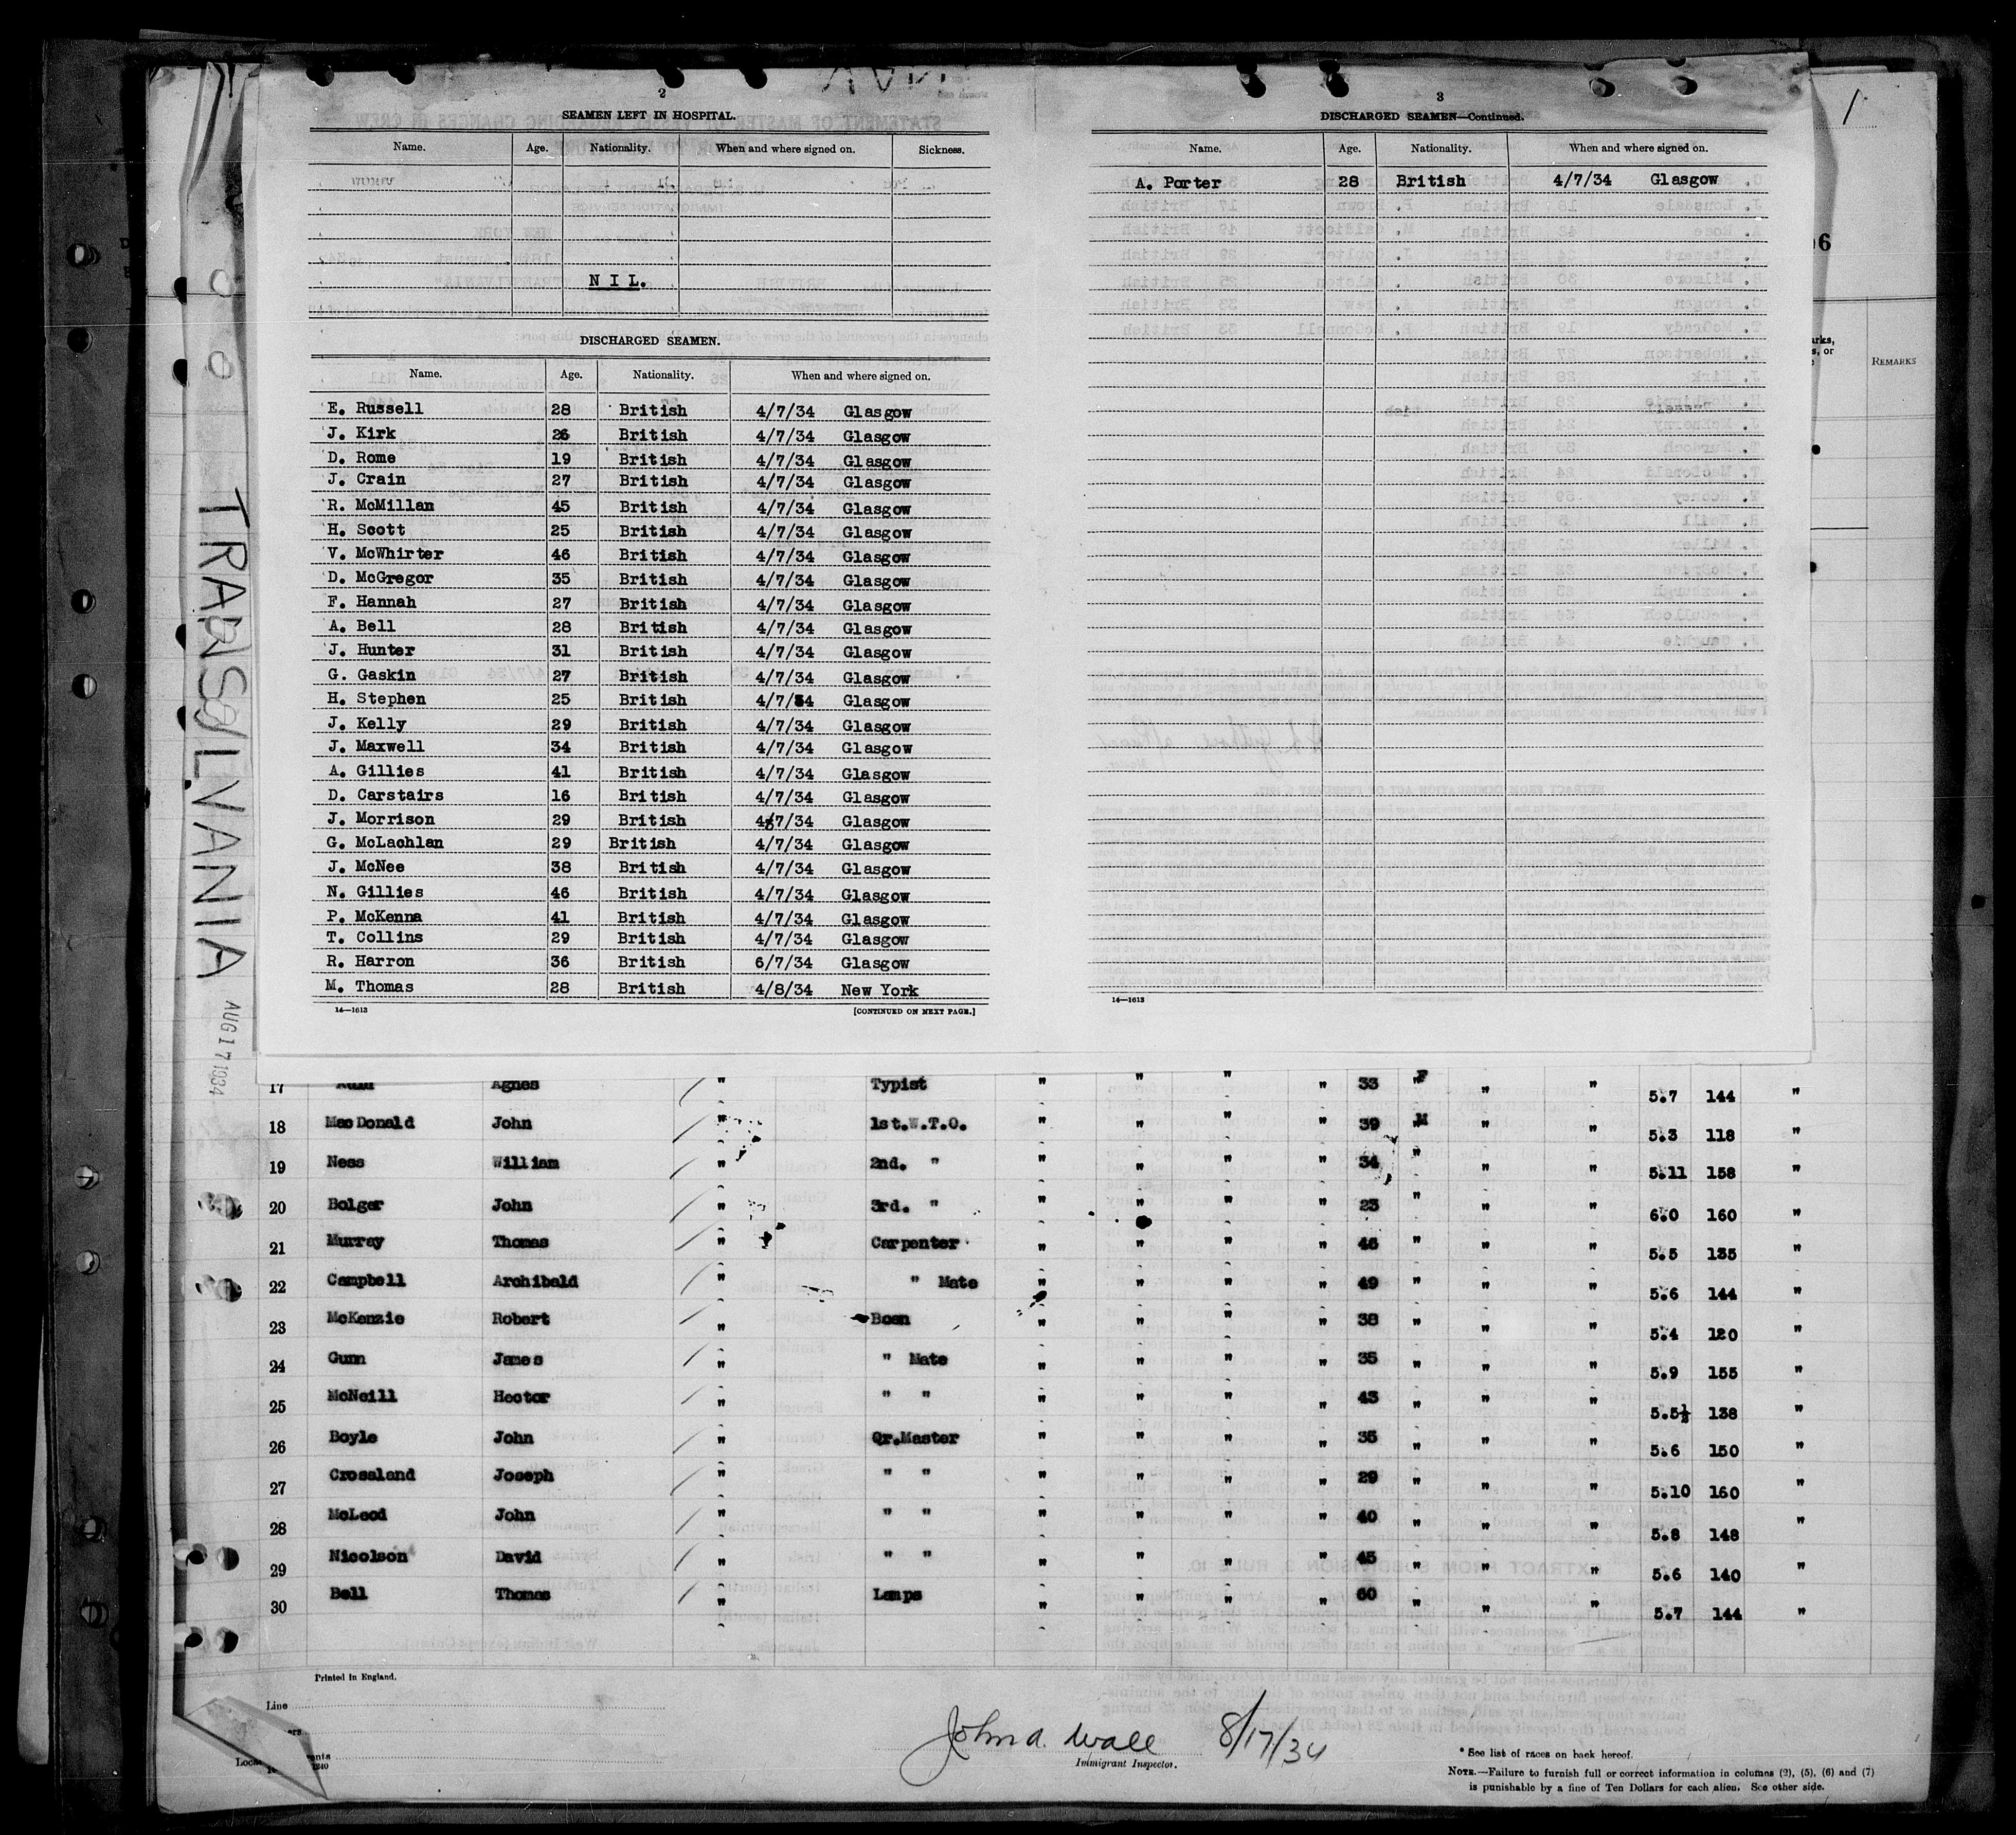 2
SEAMEN LEFT IN HOSPITAL.
Name. Age. Nationality. When and where signed on. Sickness.
N I L.
DISCHARGED SEAMEN.
Name. Age. Nationality. When and where signed on.
E. Russell 28 British 4/7/34 Glasgow
J. Kirk 26 British 4/7/34 Glasgow
D. Rome 19 British 4/7/34 Glasgow
J. Crain 27 British 4/7/34 Glasgow
R. McMillan 45 British 4/7/34 Glasgow
H. Scott 25 British 4/7/34 Glasgow
V. McWhirter 46 British 4/7/34 Glasgow
D. McGregor 35 British 4/7/34 Glasgow
F. Hannah 27 British 4/7/34 Glasgow
A. Bell 28 British 4/7/34 Glasgow
J. Hunter 31 British 4/7/34 Glasgow
G. Gaskin 27 British 4/7/34 Glasgow
H. Stephen 25 British 4/7/34 Glasgow
J. Kelly 29 British 4/7/34 Glasgow
J. Maxwell 34 British 4/7/34 Glasgow
A. Gillies 41 British 4/7/34 Glasgow
D. Carstairs 16 British 4/7/34 Glasgow
J. Morrison 29 British 4/7/34 Glasgow
G. McLachlan 29 British 4/7/34 Glasgow
J. McNee 38 British 4/7/34 Glasgow
N. Gillies 46 British 4/7/34 Glasgow
P. McKenna 41 British 4/7/34 Glasgow
T. Collins 29 British 4/7/34 Glasgow
R. Harron 36 British 6/7/34 Glasgow
M. Thomas 28 British 4/8/34 New York
14—1613 [CONTINUED ON NEXT PAGE.]
3
DISCHARGED SEAMEN—Continued.
Name. Age. Nationality. When and where signed on.
A. Porter 28 British 4/7/34 Glasgow
14—1613
1
REMARKS
TRANSYLVANIA
AUG 17 1934
17 Agnes " Typist " " " " 33 " F " " 5.7 144 "
18 MacDonald John " 1st.W.T.O. " " " " 39 " M " " 5.3 118 "
19 Ness William " 2nd. " " " " " 34 " " " 5.11 158 "
20 Bolger John " 3rd. " " " " " 23 " " " 6.0 160 "
21 Murray Thomas " Carpenter " " " " 46 " " " 5.5 135 "
22 Campbell Archibald " " Mate " " " " 49 " " " 5.6 144 "
23 McKenzie Robert " Bosn " " " " 38 " " " 5.4 120 "
24 Gunn James " " Mate " " " " 35 " " " 5.9 155 "
25 McNeill Hector " " " " " " " 43 " " " 5.5½ 138 "
26 Boyle John " Qr.Master " " " " 35 " " " 5.6 150 "
27 Crossland Joseph " " " " " " " 29 " " " 5.10 160 "
28 McLeod John " " " " " " " 40 " " " 5.8 148 "
29 Nicolson David " " " " " " " 45 " " " 5.6 140 "
30 Bell Thomas " Lamps " " " " 60 " " " 5.7 144 "
Printed in England.
Line
John A. Wall 8/17/34
Immigrant Inspector.
* See list of races on back hereof.
NOTE.—Failure to furnish full or correct information in columns (2), (5), (6) and (7)
is punishable by a fine of Ten Dollars for each alien. See other side.